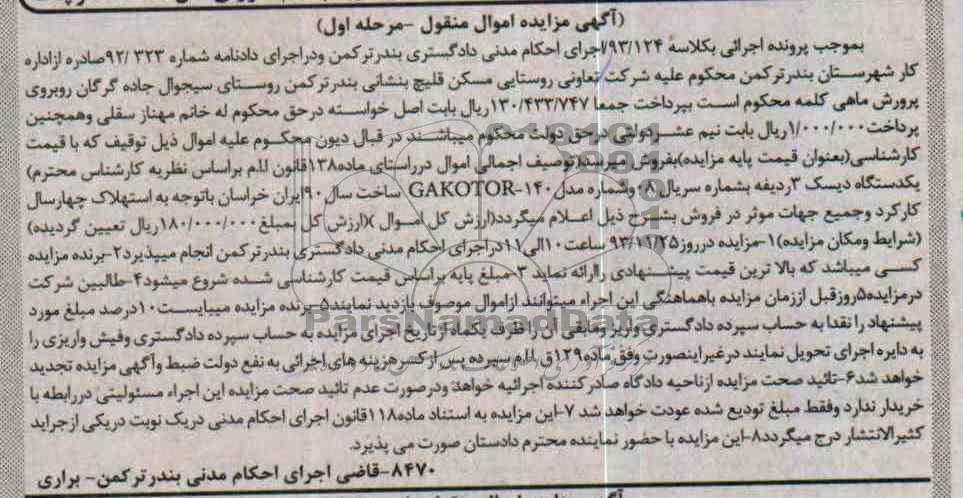 (آگهی مزایده اموال منقول -مرحله اول)
بموجب پرونده اجرائی بکلاسه ۹۳/۱۲۴/اجرای احکام مدنی دادگستری بندرترکمن ودراجرای دادنامه شماره ۳۲۳ /۹۲صادره ازاداره
کار شهرستان بندرترکمن محکوم علیه شرکت تعاونی روستایی مسکن قلیچ بنشانی بندرترکمن روستای سیجوال جاده گرگان روبروی
پرورش ماهی کلمه محکوم است بپرداخت جمعا ۱۳۰/۴۳۳/۷۴۷ریال بابت اصل خواسته درحق محکوم له خانم مهناز سقلی وهمچنین
پرداخت۱/۰۰۰/۰۰۰ریال بابت نیم عشردولتی درحق دولت محکوم میباشند در قبال دیون محکوم علیه اموال ذیل توقیف که با قیمت
کارشناسی(بعنوان قیمت پایه مزایده)بفروش میرسد(توصیف اجمالی اموال درراستای ماده۱۳۸قانون ا.ا.م براساس نظریه کارشناس محترم)
یکدستگاه دیسک ۳ردیفه بشماره سریال ۰۸وشماره مدل ۱۴۰-GAKOTOR ساخت سال ۹۰ایران خراسان باتوجه به استهلاک چهارسال
کارکرد وجمیع جهات موثر در فروش بشرح ذیل اعلام میگردد(ارزش کل اموال )(ارزش کل بمبلغ۱۸۰/۰۰۰/۰۰۰ریال تعیین گردیده)
(شرایط ومکان مزایده)۱-مزایده درروز۹۳/۱۱/۲۵ ساعت۱۰الی۱۱دراجرای احکام مدنی دادگستری بندرترکمن انجام میپذیرد۲-برنده مزایده
کسی میباشد که بالا ترین قیمت پیشنهادی راارائه نماید ۳-مبلغ پایه براساس قیمت کارشناسی شده شروع میشود۴-طالبین شرکت
درمزایده۵روزقبل اززمان مزایده باهماهنگی این اجراء میتوانند ازاموال موصوف بازدید نمایند۵-برنده مزایده میبایست۱۰درصد مبلغ مورد
پیشنهاد را نقدا به حساب سپرده دادگستری واریز ومابقی آن را ظرف یکماه از تاریخ اجرای مزایده به حساب سپرده دادگستری وفیش واریزی را
به دایره اجرای تحویل نمایند درغیراینصورت وفق ماده۱۲۹ق.ا.ا.م سپرده پس از کسرهزینه های اجرائی به نفع دولت ضبط وآگهی مزایده تجدید
خواهد شد۶-تائید صحت مزایده ازناحیه دادگاه صادرکننده اجرائیه خواهد ودرصورت عدم تائید صحت مزایده این اجراء مسئولیتی دررابطه با
خریدار ندارد وفقط مبلغ تودیع شده عودت خواهد شد ۷-این مزایده به استناد ماده۱۱۸قانون اجرای احکام مدنی دریک نوبت دریکی ازجراید
کثیرالانتشار درج میگردد۸-این مزایده با حضور نماینده محترم دادستان صورت می پذیرد.
۸۴۷۰-قاضی اجرای احکام مدنی بندرترکمن- براری
ParsNamadData